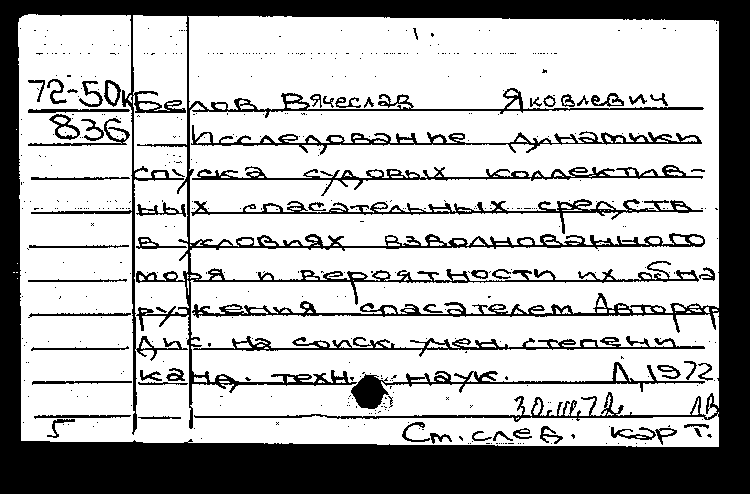 1.
72-50к Белов, Вячеслав Яковлевич
836 Исследование динамики
спуска судовых коллектив-
ных спасательных средств
в условиях взволнованного
моря и вероятности их обна
ружения спасателем. Автореф
дис. на соиск. учен. степени
канд. техн. наук. Л, 1972
30.III.72г. ЛВ
5 См. след. карт.